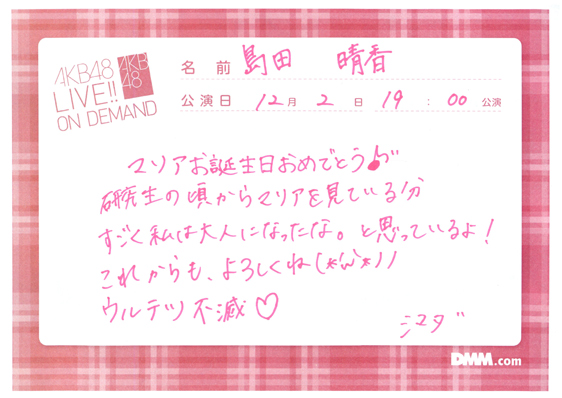 AKB48
LIVE!!
ON DEMAND
AKB
48
名前 島田 晴香
公演日 12月 2日 19:00 公演
マリアお誕生日おめでとう♪
研究生の頃からマリアを見ている分
すごく私は大人になったな。と思っているよ!
これからも、よろしくね(*'ω'*))
ウルテツ不滅♡
シマダ
DMM.com